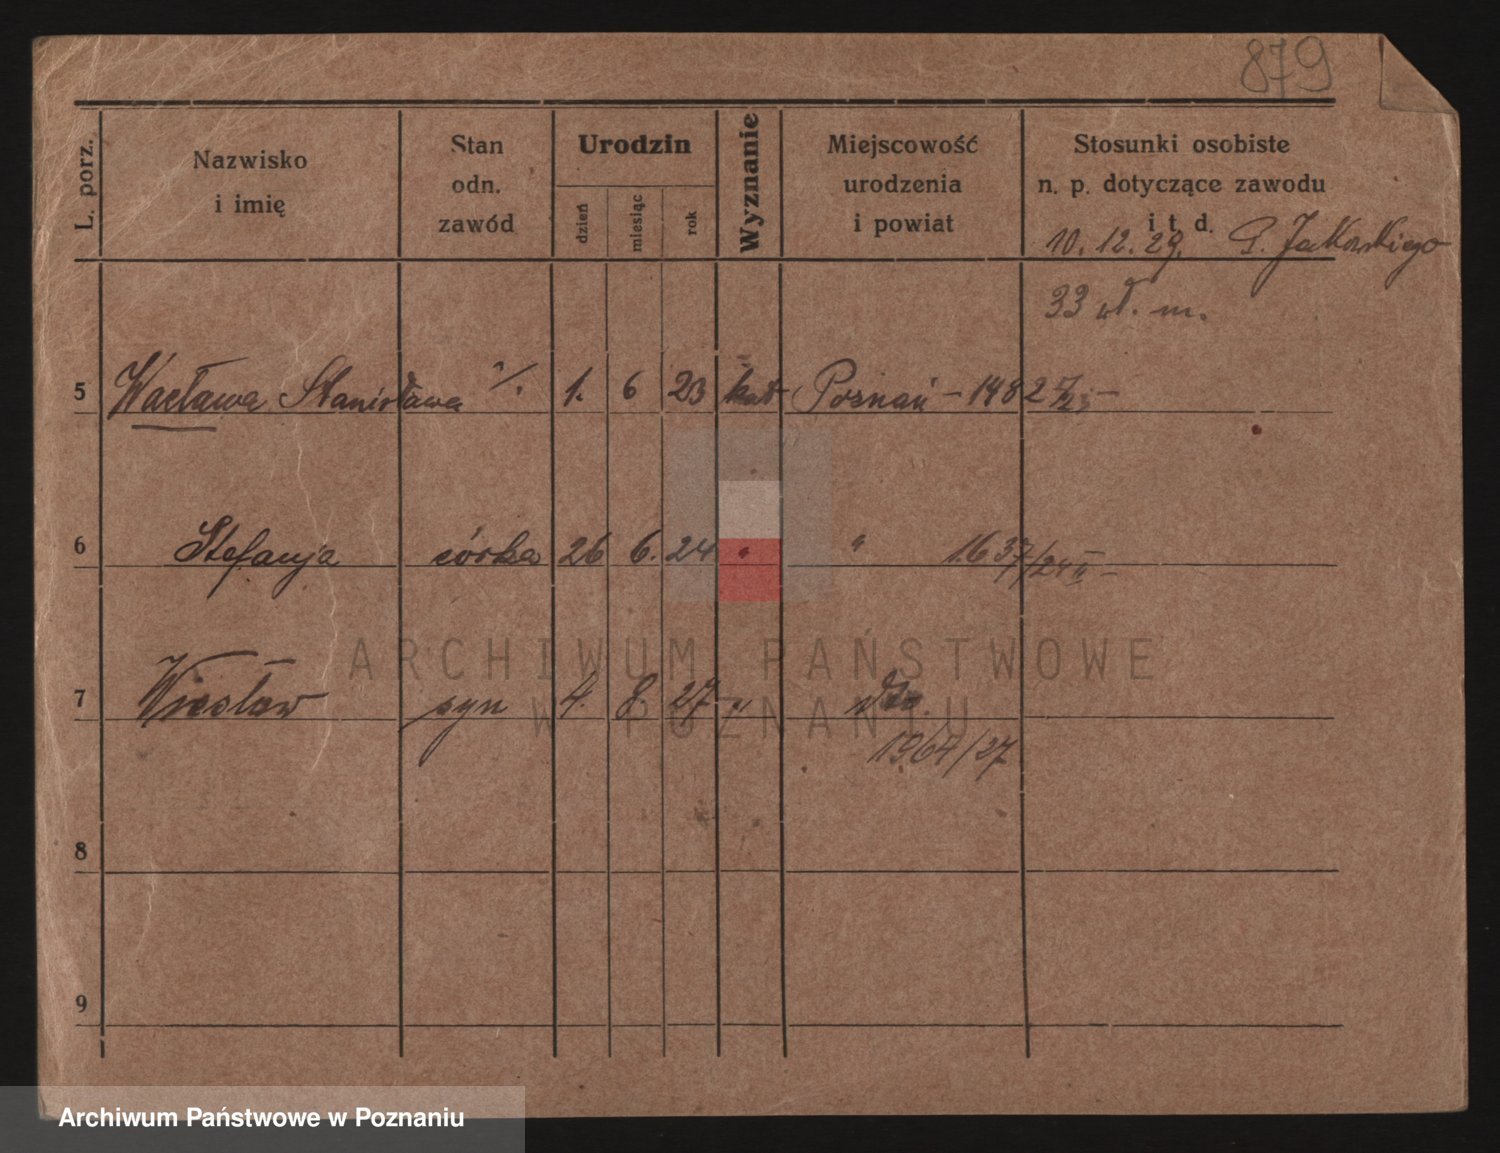 879
L. porz.
Nazwisko
i imię
Stan
odn.
zawód
Urodzin
dzień
miesiąc
rok
Wyznanie
Miejscowość
urodzenia
i powiat
Stosunki osobiste
n. p. dotyczące zawodu
i t. d.
10. 12. 29.
33 wł. m.
5 Wacława Stanisława 1. 6 23 kat Poznań - 1482
6 Stefanja córka 26 6. 24 " " 1637/24 II -
7 Wiesław syn 4. 8. 27 " dto.
1964/27
8
9
ARCHIWUM PAŃSTWOWE
W POZNANIU
Archiwum Państwowe w Poznaniu